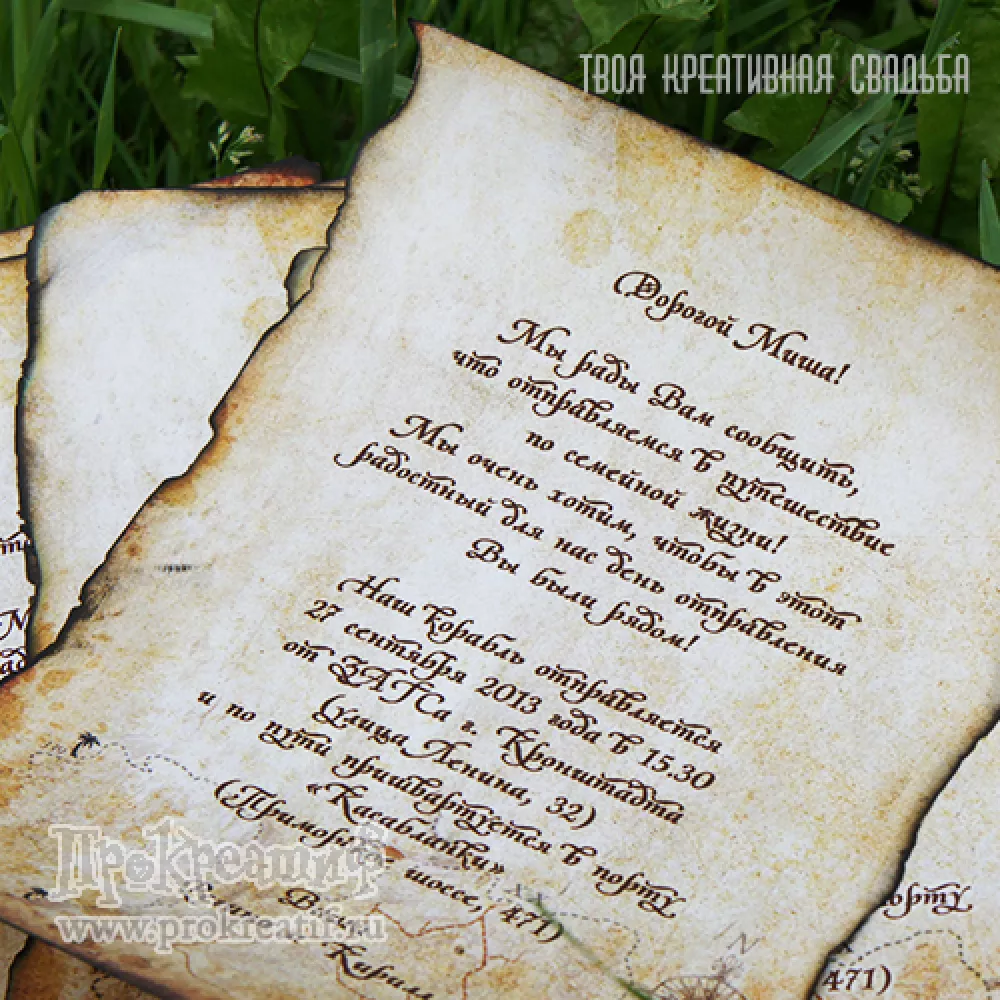 ТВОЯ КРЕАТИВНАЯ СВАДЬБА
Дорогой Миша!
Мы рады Вам сообщить,
что отправляемся в путешествие
по семейной жизни!
Мы очень хотим, чтобы в этот
радостный для нас день отправления
Вы были рядом!
Наш корабль отправляется
27 сентября 2013 года в 15.30
от ЗАГСа г. Кронштадта
(улица Ленина, 32)
и по пути пришвартуется в порту
«Касабланки»
шоссе, 471)
Кирилл
ПроКреатиф
www.prokreatif.ru
порту
471)